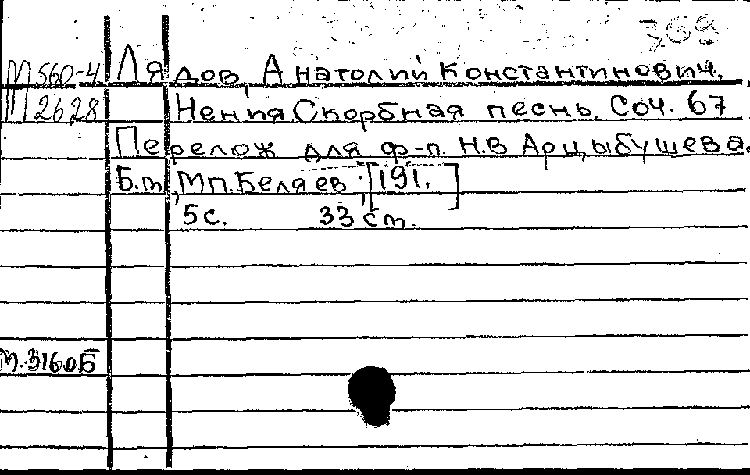 369
М560-4 Лядов, Анатолий Константинович.
М2628 Нения. Скорбная песнь. Соч. 67
Перелож для ф-п. Н.В Арцыбушева.
Б.м, М.П. Беляев, [191.]
5с. 33 ст.
М.3160Б